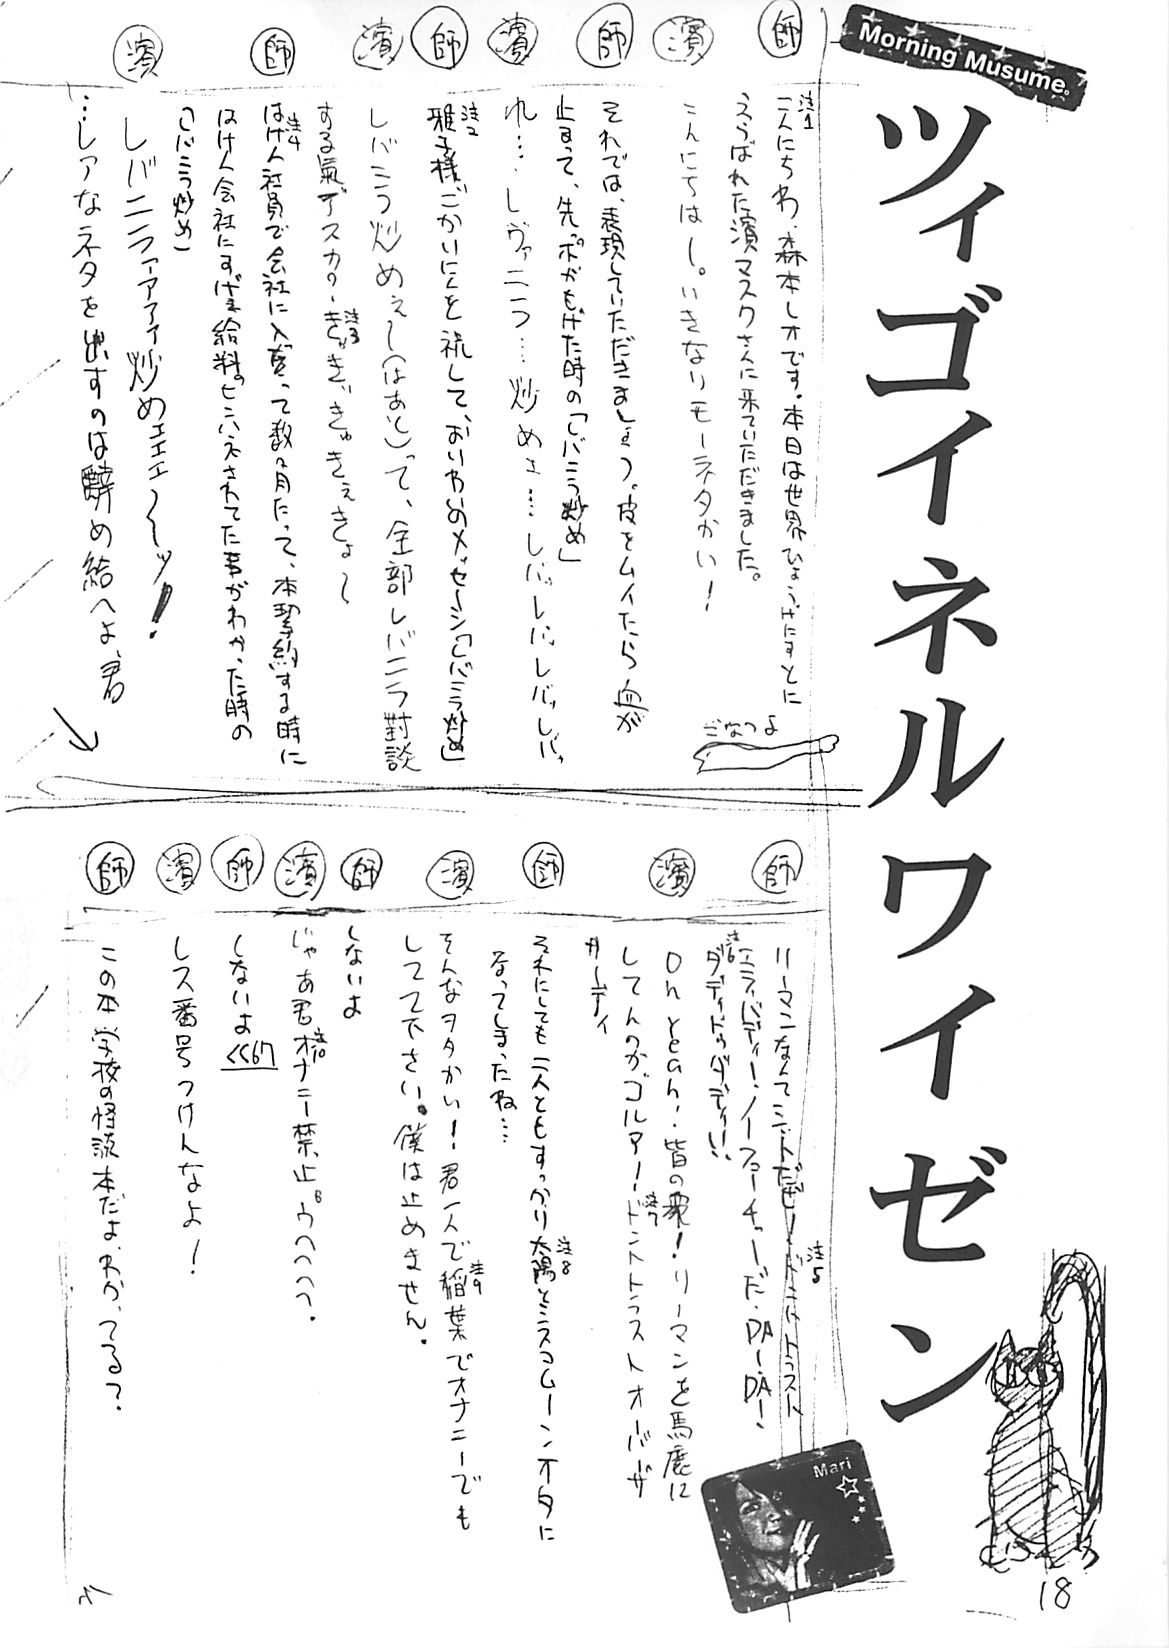 Morning Musume。
ツィゴイネルワイゼン
師
注1
こんにちわ、森本レオです。本日は世界ひょうげにすとに
えらばれた濱マスクさんに来ていただきました。
濱
こんにちはし。いきなりモーネタかい！
師
それでは、表現していただきましょう。皮をムイたら血が
止まって、先ッポがもげた時の「レバニラ炒め」
濱
れ…レヴァニラ…炒めェ…レバッレバッレバッレバッ
師
注2
雅子様ごかいにんを祝して、おいわいのメッセージ「レバニラ炒め」
濱
レバニラ炒めぇ〜(はあと)って、全部レバニラ對談
する氣デスカ
注3
師
注4
はけん社員で会社に入って数ヶ月たって、本契約する時に
はけん会社にすげぇ給料のピンハネされてた事がわかった時の
「レバニラ炒め」
濱
レバニラァアアァ炒めェエエ〜〜ッ！
…レアなネタを出すのは辭め給へよ、君
ごなつよ
師
リーマンなんてシットだぜ！ドントトラスト
注5
エブリバディー・ノーフューチャーだ・DA・DA！
注6
濱
Oh yeah！皆の衆！リーマンを馬鹿に
してんのかゴルアー！ドントトラストオーバーザ
注7
サーティ
師
それにしても二人ともすっかり太陽とシスコムーンオタに
注8
なってしまったね…
濱
そんなヲタかい！君一人で稲葉でオナニーでも
注9
してて下さい。僕は止めません。
師
しないよ
濱
じゃあ君オナニー禁止。うへへへ。
注10
師
しないよ
<<67
濱
レス番号つけんなよ！
師
この本学校の怪談本だよ、わかってる？
Mari
18